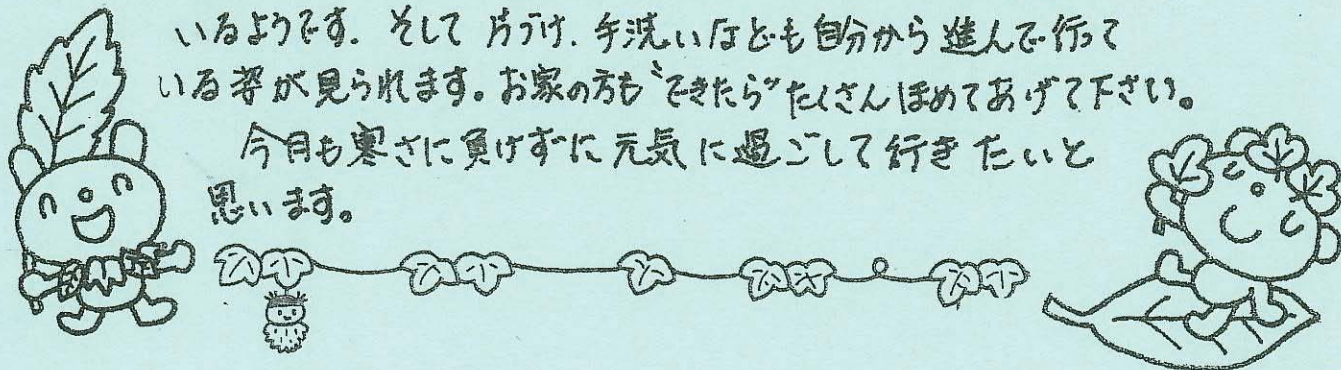 いるようです。そして 片づけ、手洗いなども自分から進んで行って
いる姿が見られます。お家の方も〝できたら〟たくさんほめてあげて下さい。
今月も寒さに負けずに元気に過ごして行きたいと
思います。